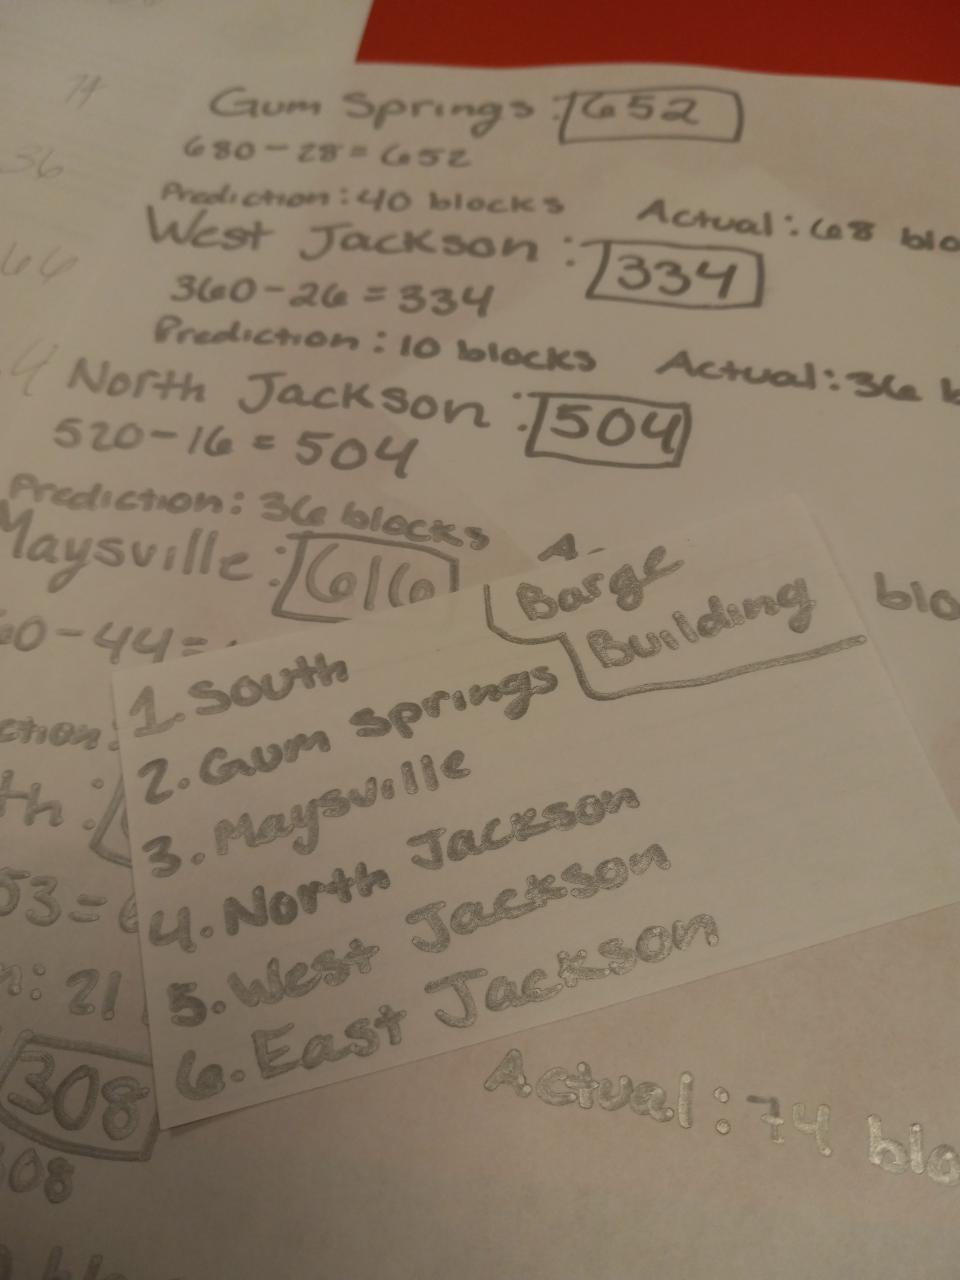 74
36
66
4
Gum Springs : 652
680-28=652
Prediction: 40 blocks Actual: 68 blo
West Jackson : 334
360-26=334
Prediction: 10 blocks Actual: 36 b
North Jackson : 504
520-16=504
Prediction: 36 blocks A
Maysville : 616
60-44=
blo
ction:
th :
53=6
n: 21
308
308
Actual: 74 blo
Barge
Building
1. South
2. Gum Springs
3. Maysville
4. North Jackson
5. West Jackson
6. East Jackson